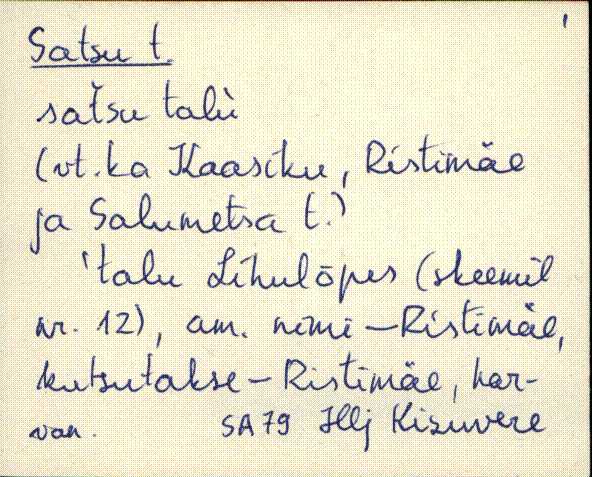 Satsu t.
satsu talu
(vt. ka Kaasiku, Ristimäe
ja Salumetsa t.)
'talu Lihulõpes (skeemil
nr. 12), am. nimi – Ristimäe,
kutsutakse – Ristimäe, har-
van. SA79 Hlj Kisuvere